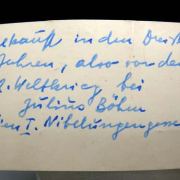 ekauft in den Dreiß
Jahren, also vor de
2. Weltkrieg bei
Julius Böhm
ien I. Nibelungengas